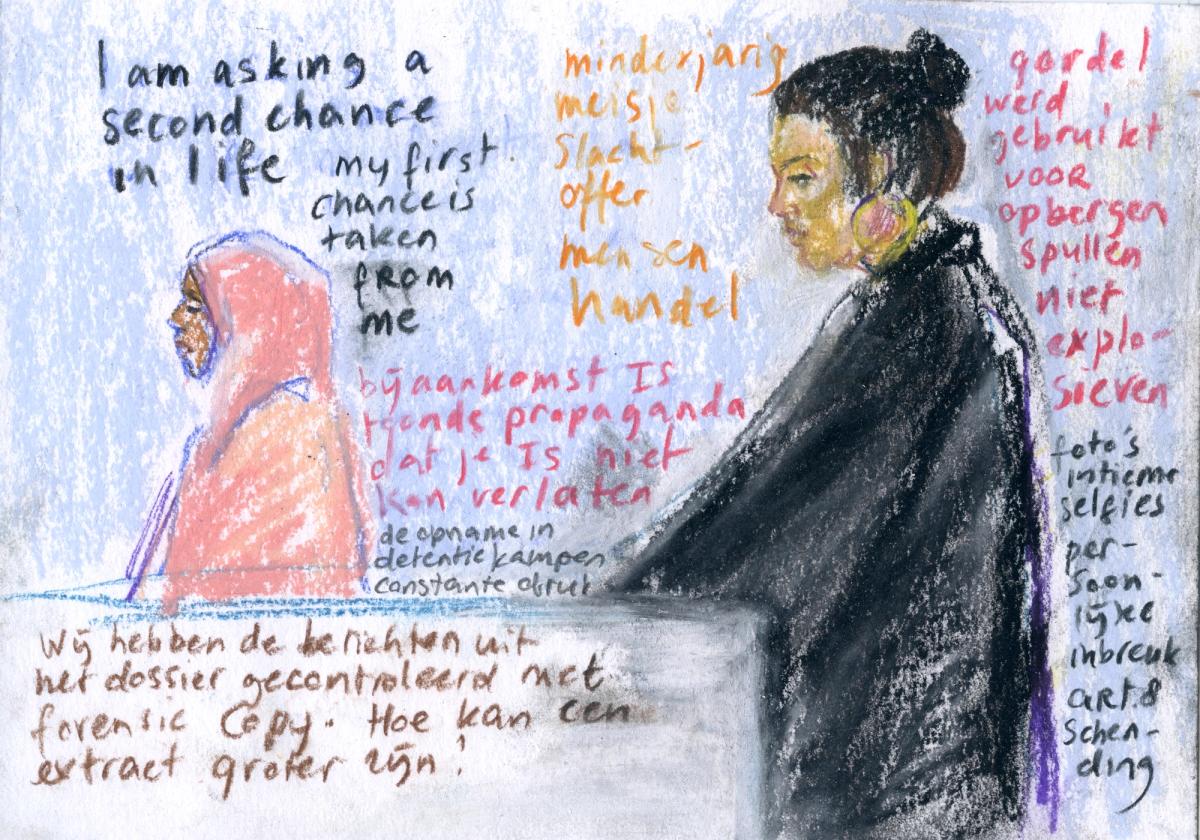 I am asking a
second chance
in life
my first
chance is
taken
from
me
minderjarig
meisje
Slacht-
offer
mensen
handel
gordel
werd
gebruikt
voor
opbergen
spullen
niet
explo-
sieven
bij aankomst IS
toonde propaganda
dat je IS niet
kan verlaten
de opname in
detentiekampen
constante druk
foto's
intieme
selfies
per-
soon-
lijke
inbreuk
art.8
schen-
ding
Wij hebben de berichten uit
het dossier gecontroleerd met
forensic Copy. Hoe kan een
extract groter zijn!